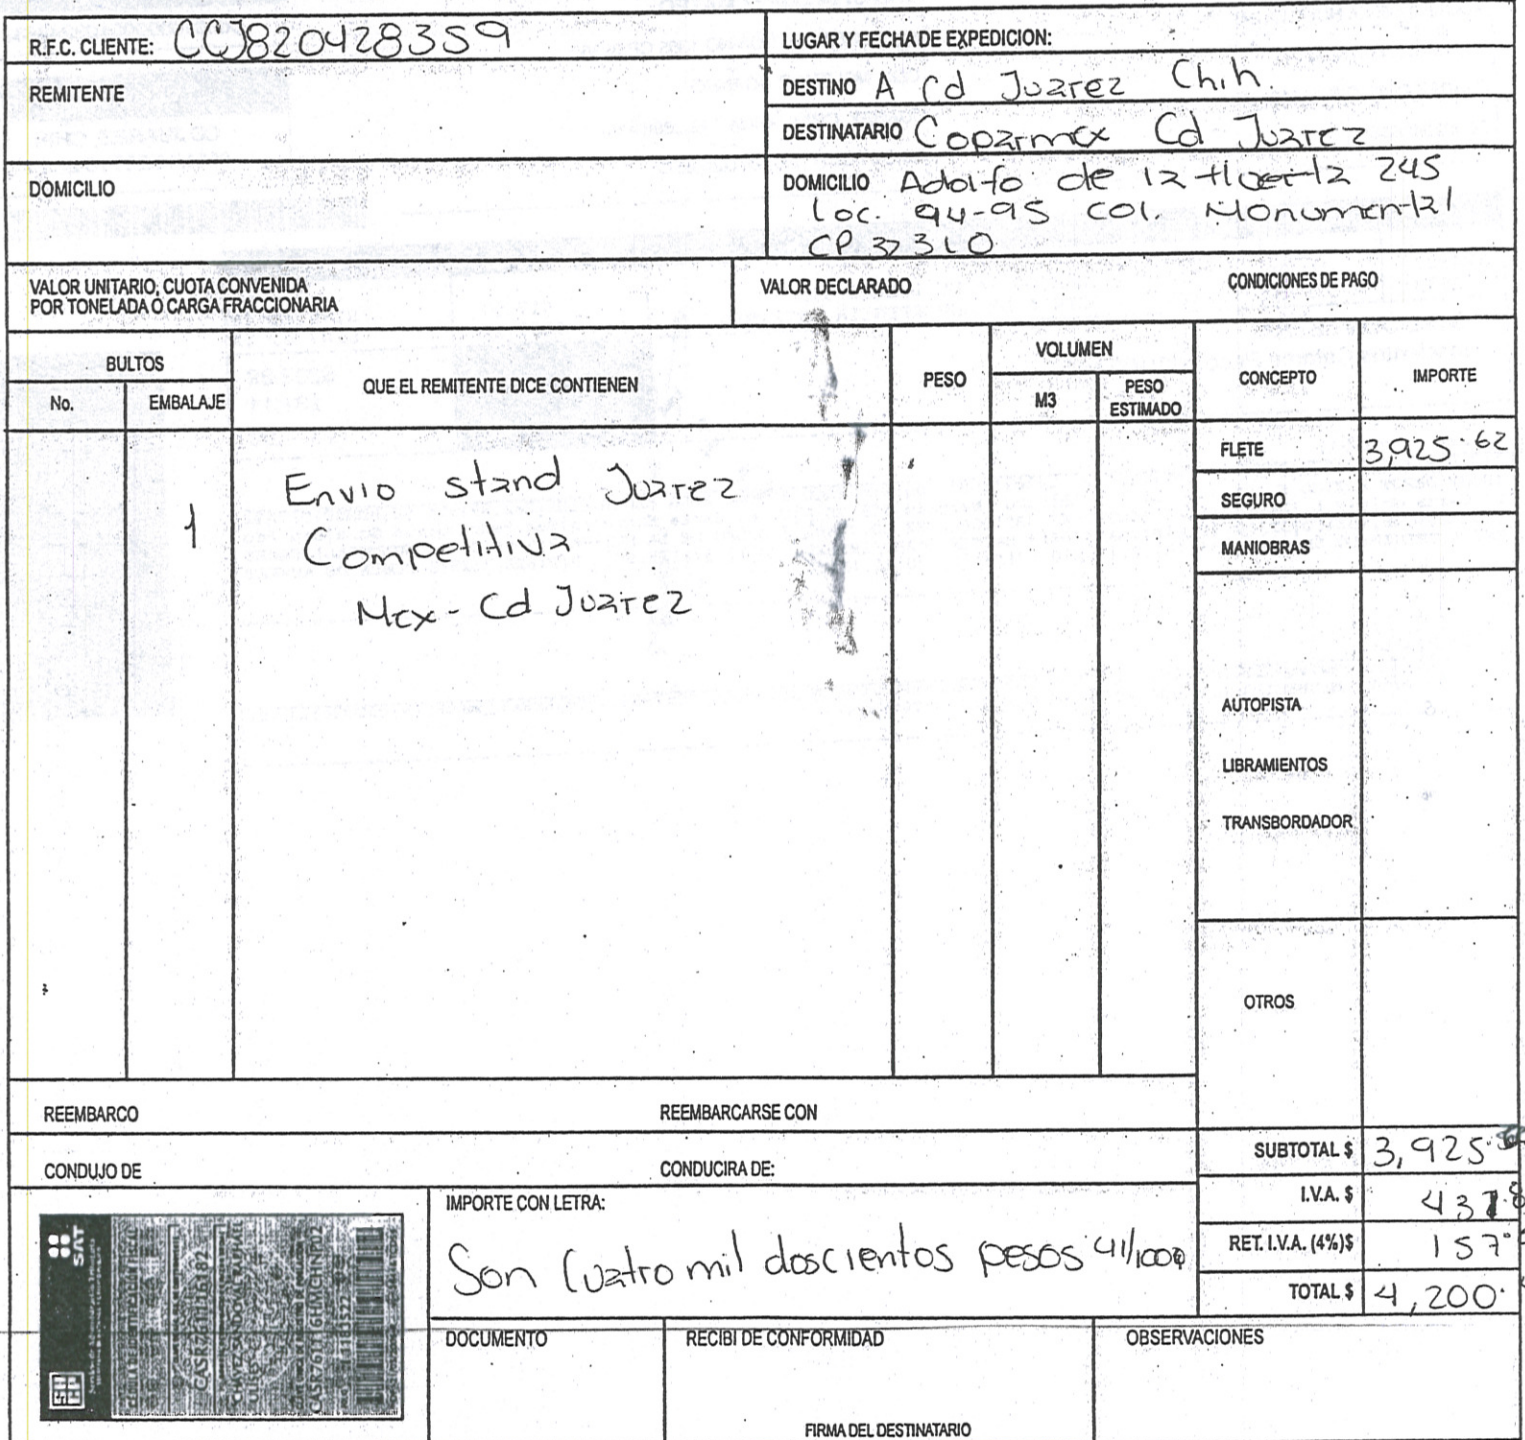 R.F.C. CLIENTE: CCJ820428359
LUGAR Y FECHA DE EXPEDICION:
REMITENTE
DESTINO A Cd Juarez Chih.
DESTINATARIO Coparmex Cd Juarez
DOMICILIO
DOMICILIO Adolfo de la Huerta 245
Loc. 94-95 Col. Monumental
CP. 32310
VALOR UNITARIO, CUOTA CONVENIDA
POR TONELADA O CARGA FRACCIONARIA
VALOR DECLARADO
CONDICIONES DE PAGO
BULTOS
No.
EMBALAJE
QUE EL REMITENTE DICE CONTIENEN
PESO
VOLUMEN
M3
PESO
ESTIMADO
CONCEPTO
IMPORTE
1
Envio stand Juarez
Competitiva
Mex - Cd Juarez
FLETE 3,925.62
SEGURO
MANIOBRAS
AUTOPISTA
LIBRAMIENTOS
TRANSBORDADOR
OTROS
REEMBARCO
REEMBARCARSE CON
CONDUJO DE
CONDUCIRA DE:
SUBTOTAL $ 3,925.
I.V.A. $
RET. I.V.A. (4%)$ 157.
TOTAL $ 4,200.
IMPORTE CON LETRA:
Son Cuatro mil doscientos pesos 41/100
SAT
CASR761116182
CHAVEZ SANDOVAL RAPHAEL
ULISES
CASR761116HMCHNP02
DOCUMENTO
RECIBI DE CONFORMIDAD
OBSERVACIONES
FIRMA DEL DESTINATARIO